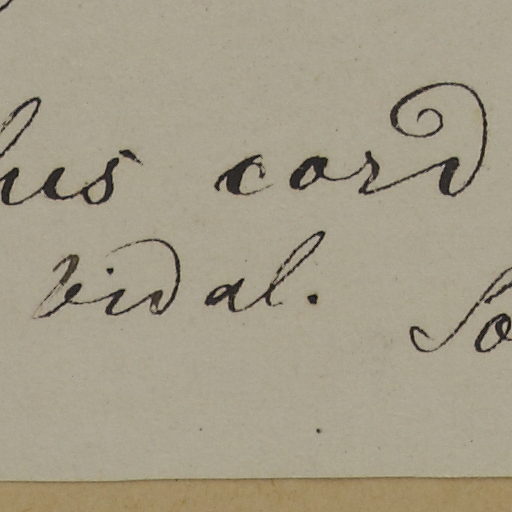 hus cord
vidal.
So